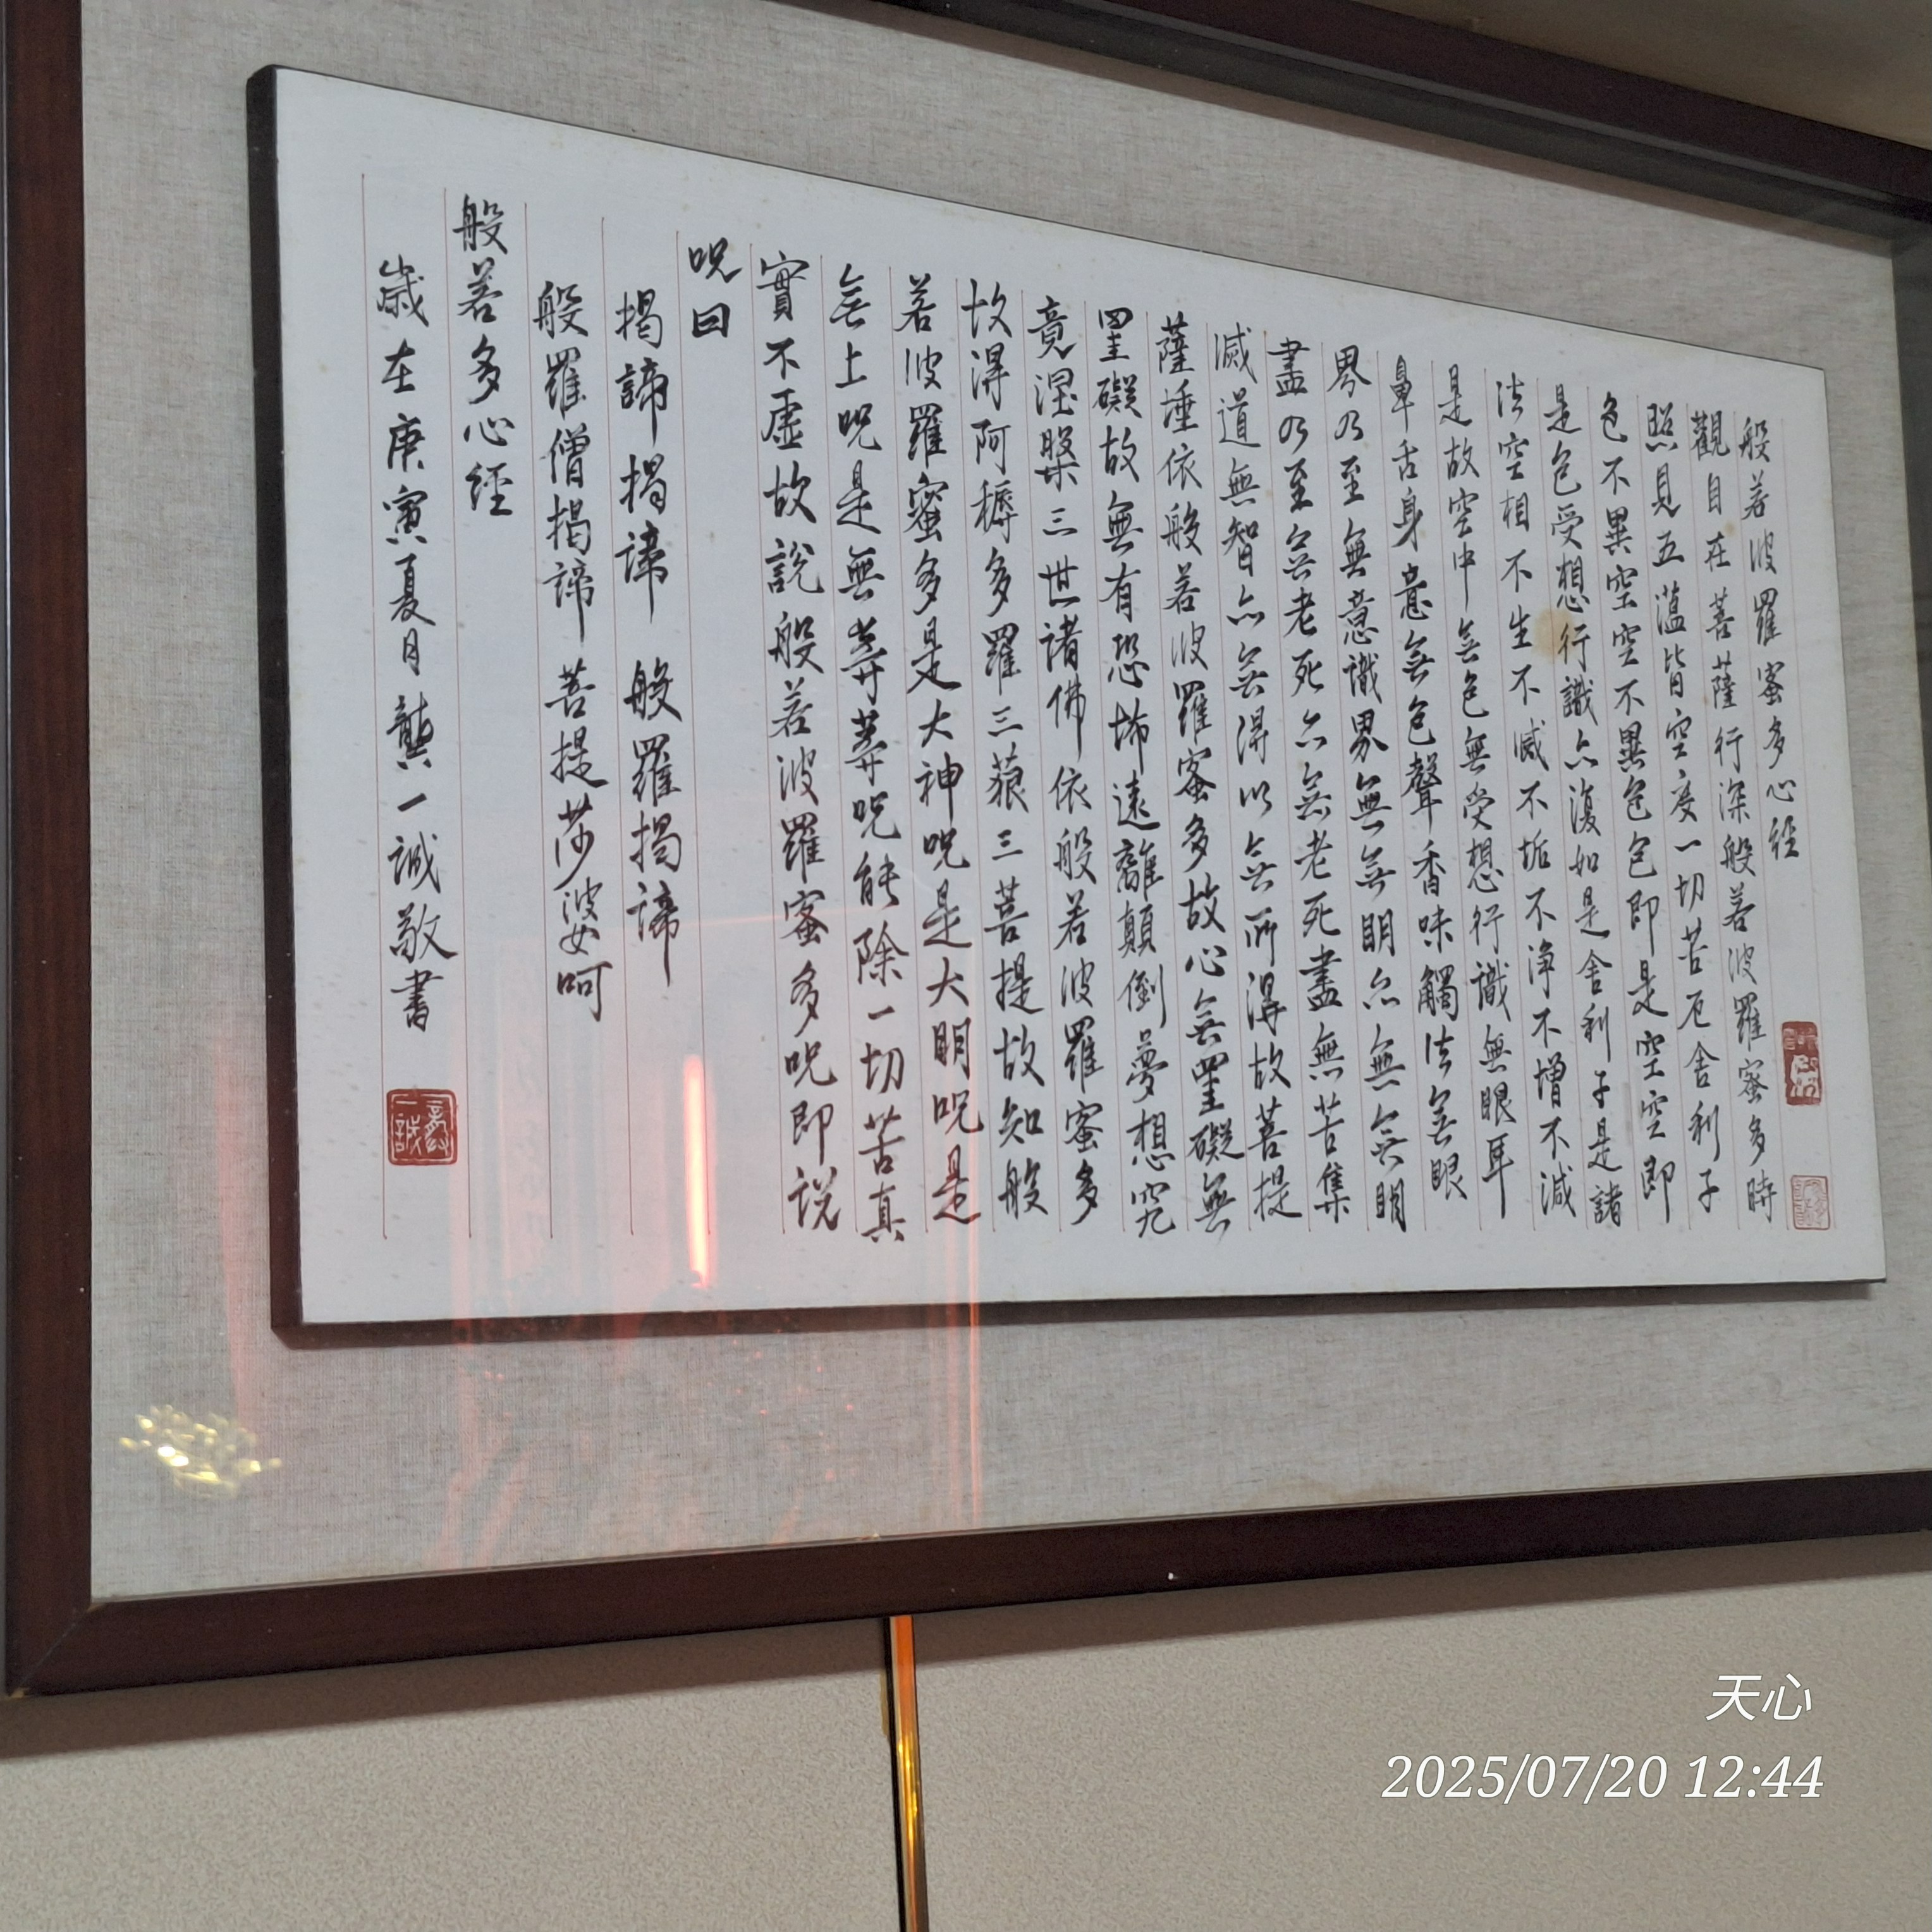 般若波羅蜜多心經
觀自在菩薩行深般若波羅蜜多時
照見五蘊皆空度一切苦厄舍利子
色不異空空不異色色即是空空即
是色受想行識亦復如是舍利子是諸
法空相不生不滅不垢不淨不增不減
是故空中無色無受想行識無眼耳
鼻舌身意無色聲香味觸法無眼
界乃至無意識界無無明亦無無明
盡乃至無老死亦無老死盡無苦集
滅道無智亦無得以無所得故菩提
薩埵依般若波羅蜜多故心無罣礙無
罣礙故無有恐怖遠離顛倒夢想究
竟涅槃三世諸佛依般若波羅蜜多
故得阿耨多羅三藐三菩提故知般
若波羅蜜多是大神咒是大明咒是
無上咒是無等等咒能除一切苦真
實不虛故說般若波羅蜜多咒即說
咒曰
揭諦揭諦 般羅揭諦
般羅僧揭諦 菩提莎婆呵
般若多心經
歲在庚寅夏月龔一誠敬書
天心
2025/07/20 12:44